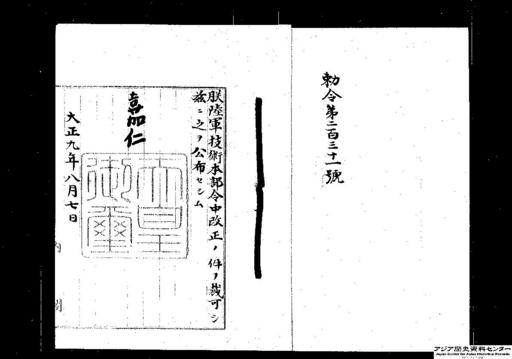 勅令第二百三十一號
朕陸軍技術本部令中改正ノ件ヲ裁可シ
茲ニ之ヲ公布セシム
嘉仁
天皇御璽
大正九年八月七日
内閣
アジア歴史資料センター
Japan Center for Asian Historical Records